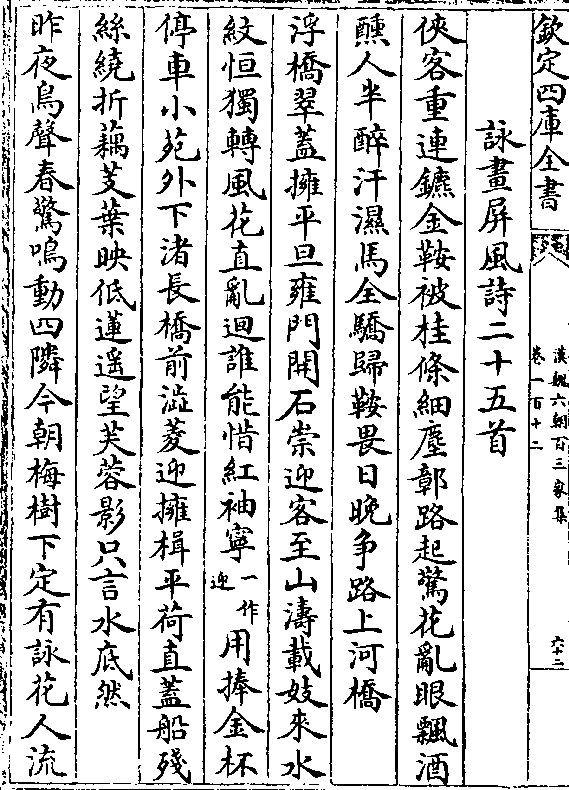 欽定四庫全書
漢魏六朝百三家集
卷一百十二
六十二
詠畫屏風詩二十五首
俠客重連鑣金鞍被桂條細塵鄣路起驚花亂眼飄酒
醺人半醉汗濕馬全驕歸鞍畏日晚争路上河橋
浮橋翠蓋擁平旦雍門開石崇迎客至山濤載妓來水
紋恒獨轉風花直亂迴誰能惜紅袖寧一作迎用捧金杯
停車小苑外下渚長橋前澁菱迎擁楫平荷直蓋船殘
絲繞折藕芰葉映低蓮遥望芙蓉影只言水底然
昨夜鳥聲春驚鳴動四隣今朝梅樹下定有詠花人流